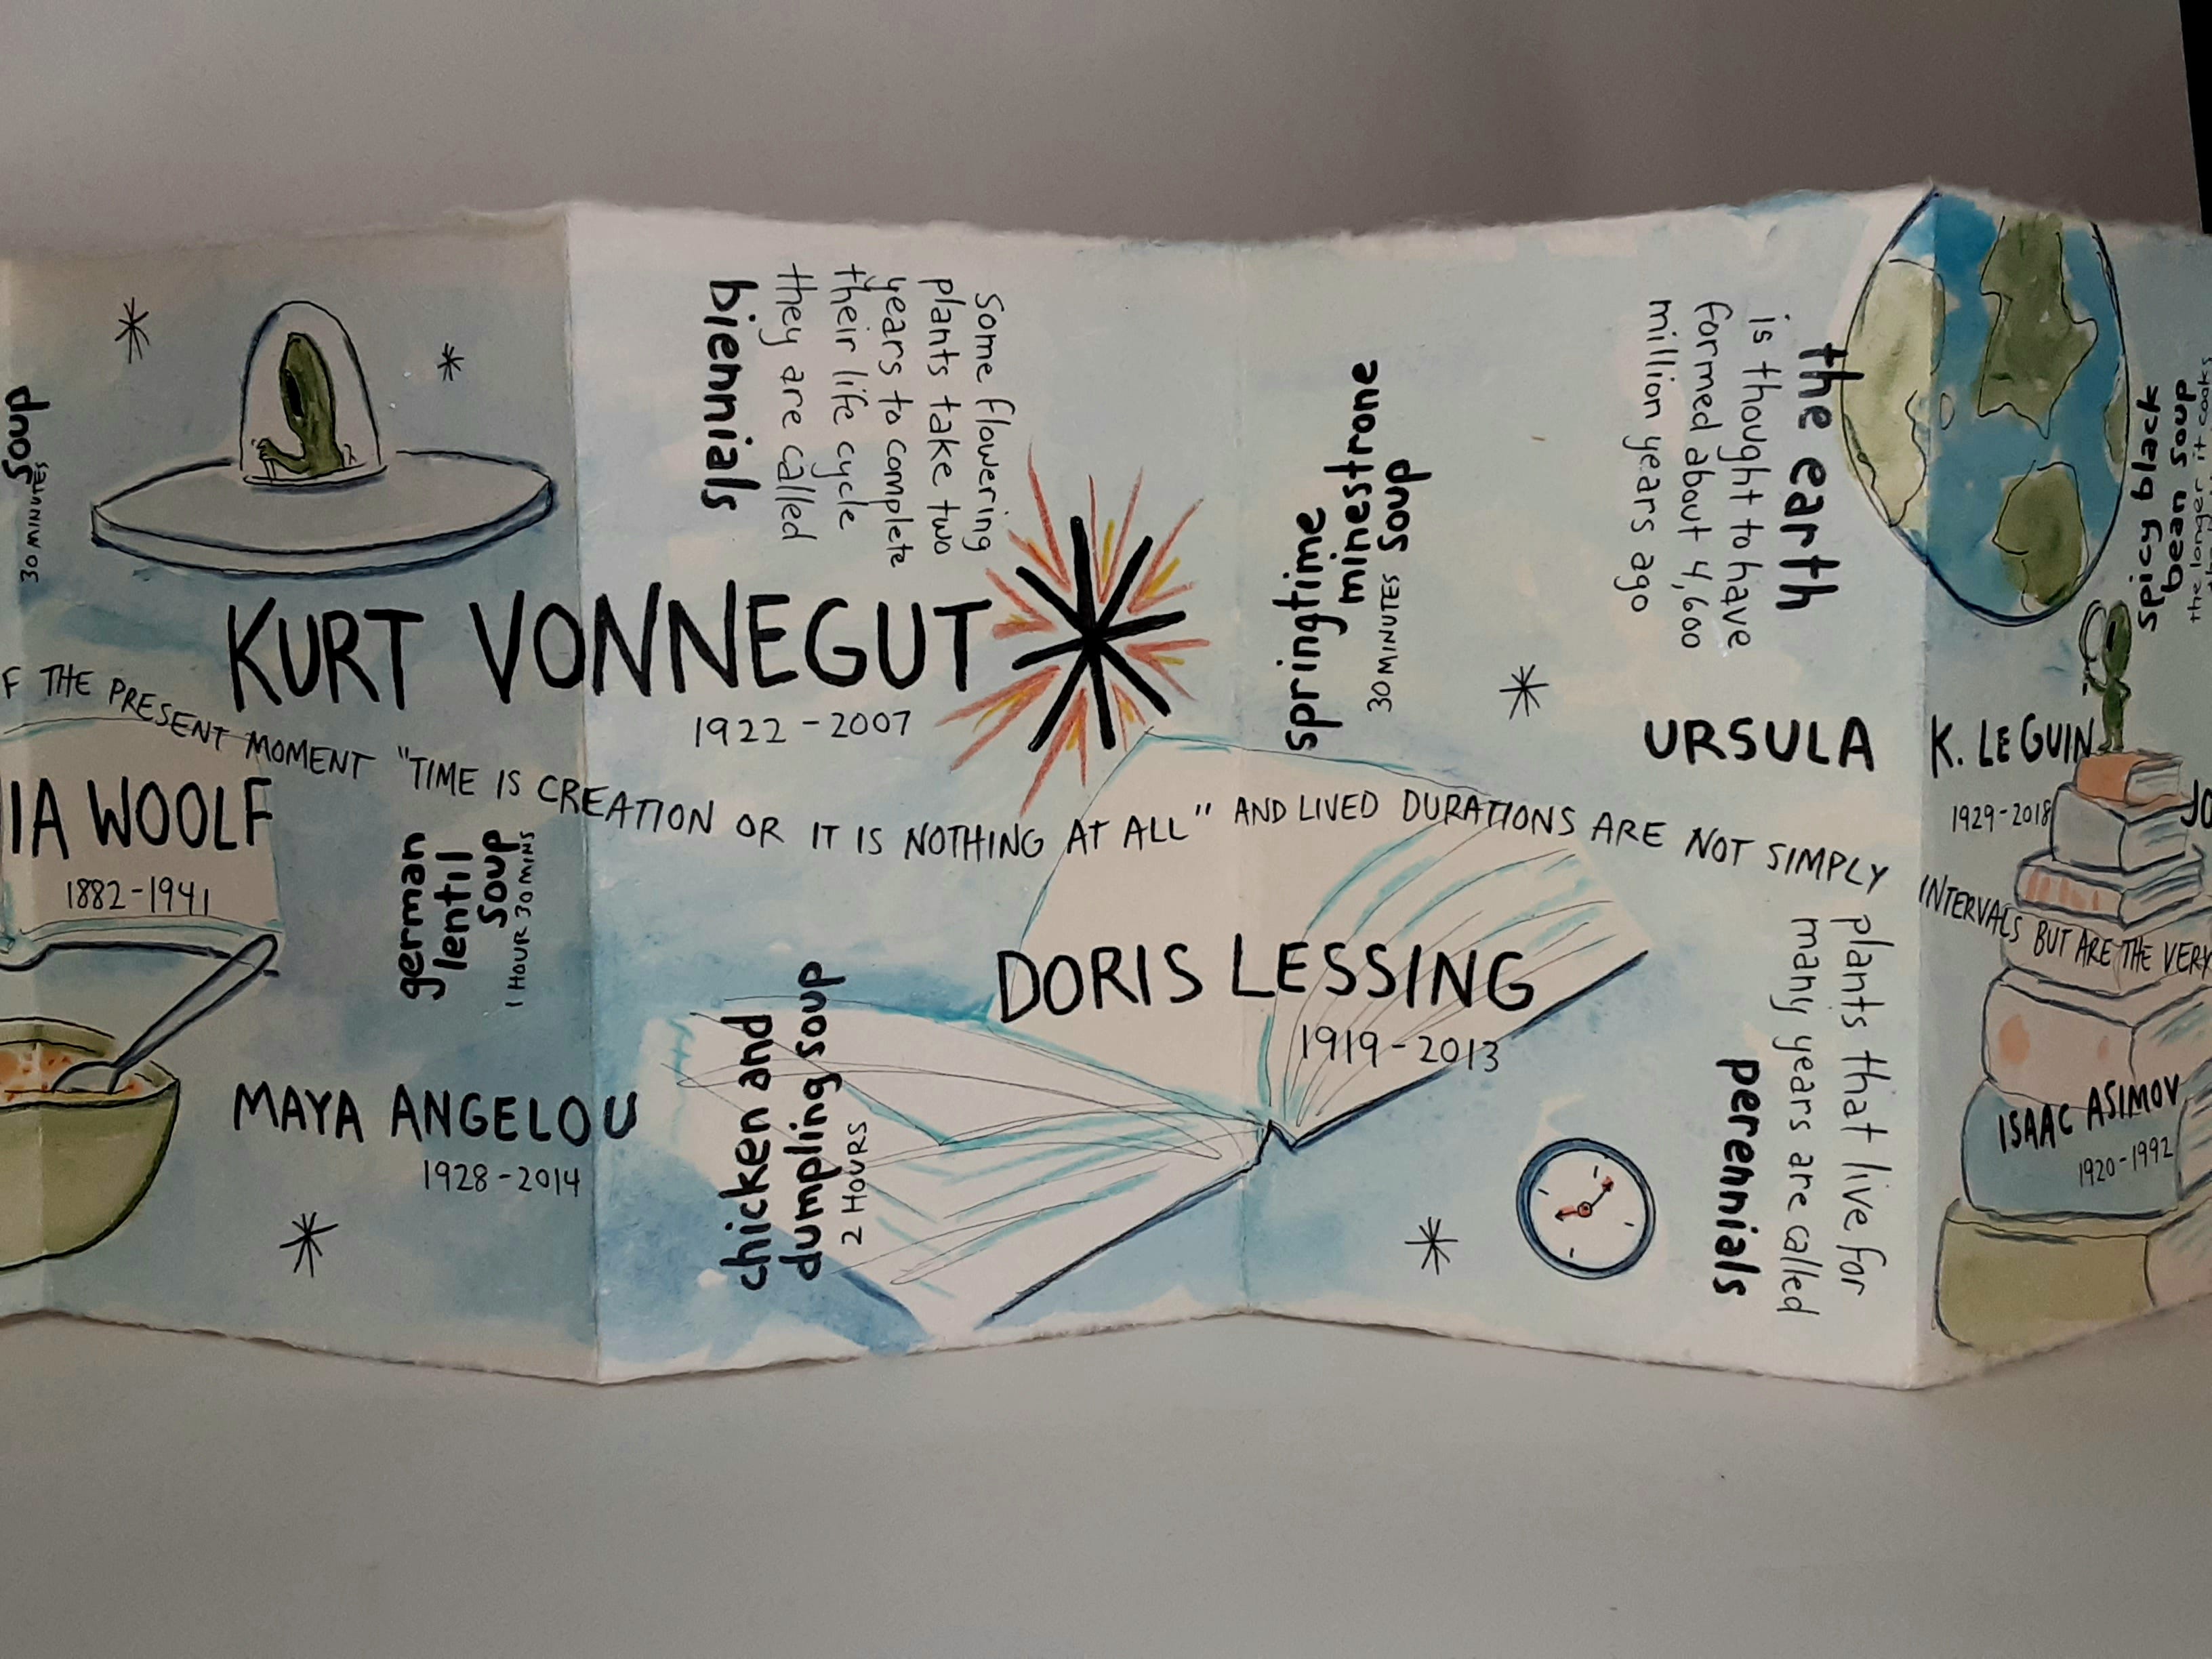 soup
30 MINUTES
KURT VONNEGUT
1922 - 2007
some flowering
plants take two
years to complete
their life cycle
they are called
biennials
springtime
minestrone
30 MINUTES soup
the earth
is thought to have
formed about 4,600
million years ago
spicy black
bean soup
the longer it cooks
F THE PRESENT MOMENT "TIME IS CREATION OR IT IS NOTHING AT ALL" AND LIVED DURATIONS ARE NOT SIMPLY INTERVALS BUT ARE THE VERY
IA WOOLF
1882-1941
german
lentil
soup
1 HOUR 30 MINS
URSULA K. LE GUIN
1929-2018
JO
DORIS LESSING
1919-2013
MAYA ANGELOU
1928-2014
chicken and
dumpling soup
2 HOURS
plants that live for
many years are called
perennials
ISAAC ASIMOV
1920-1992